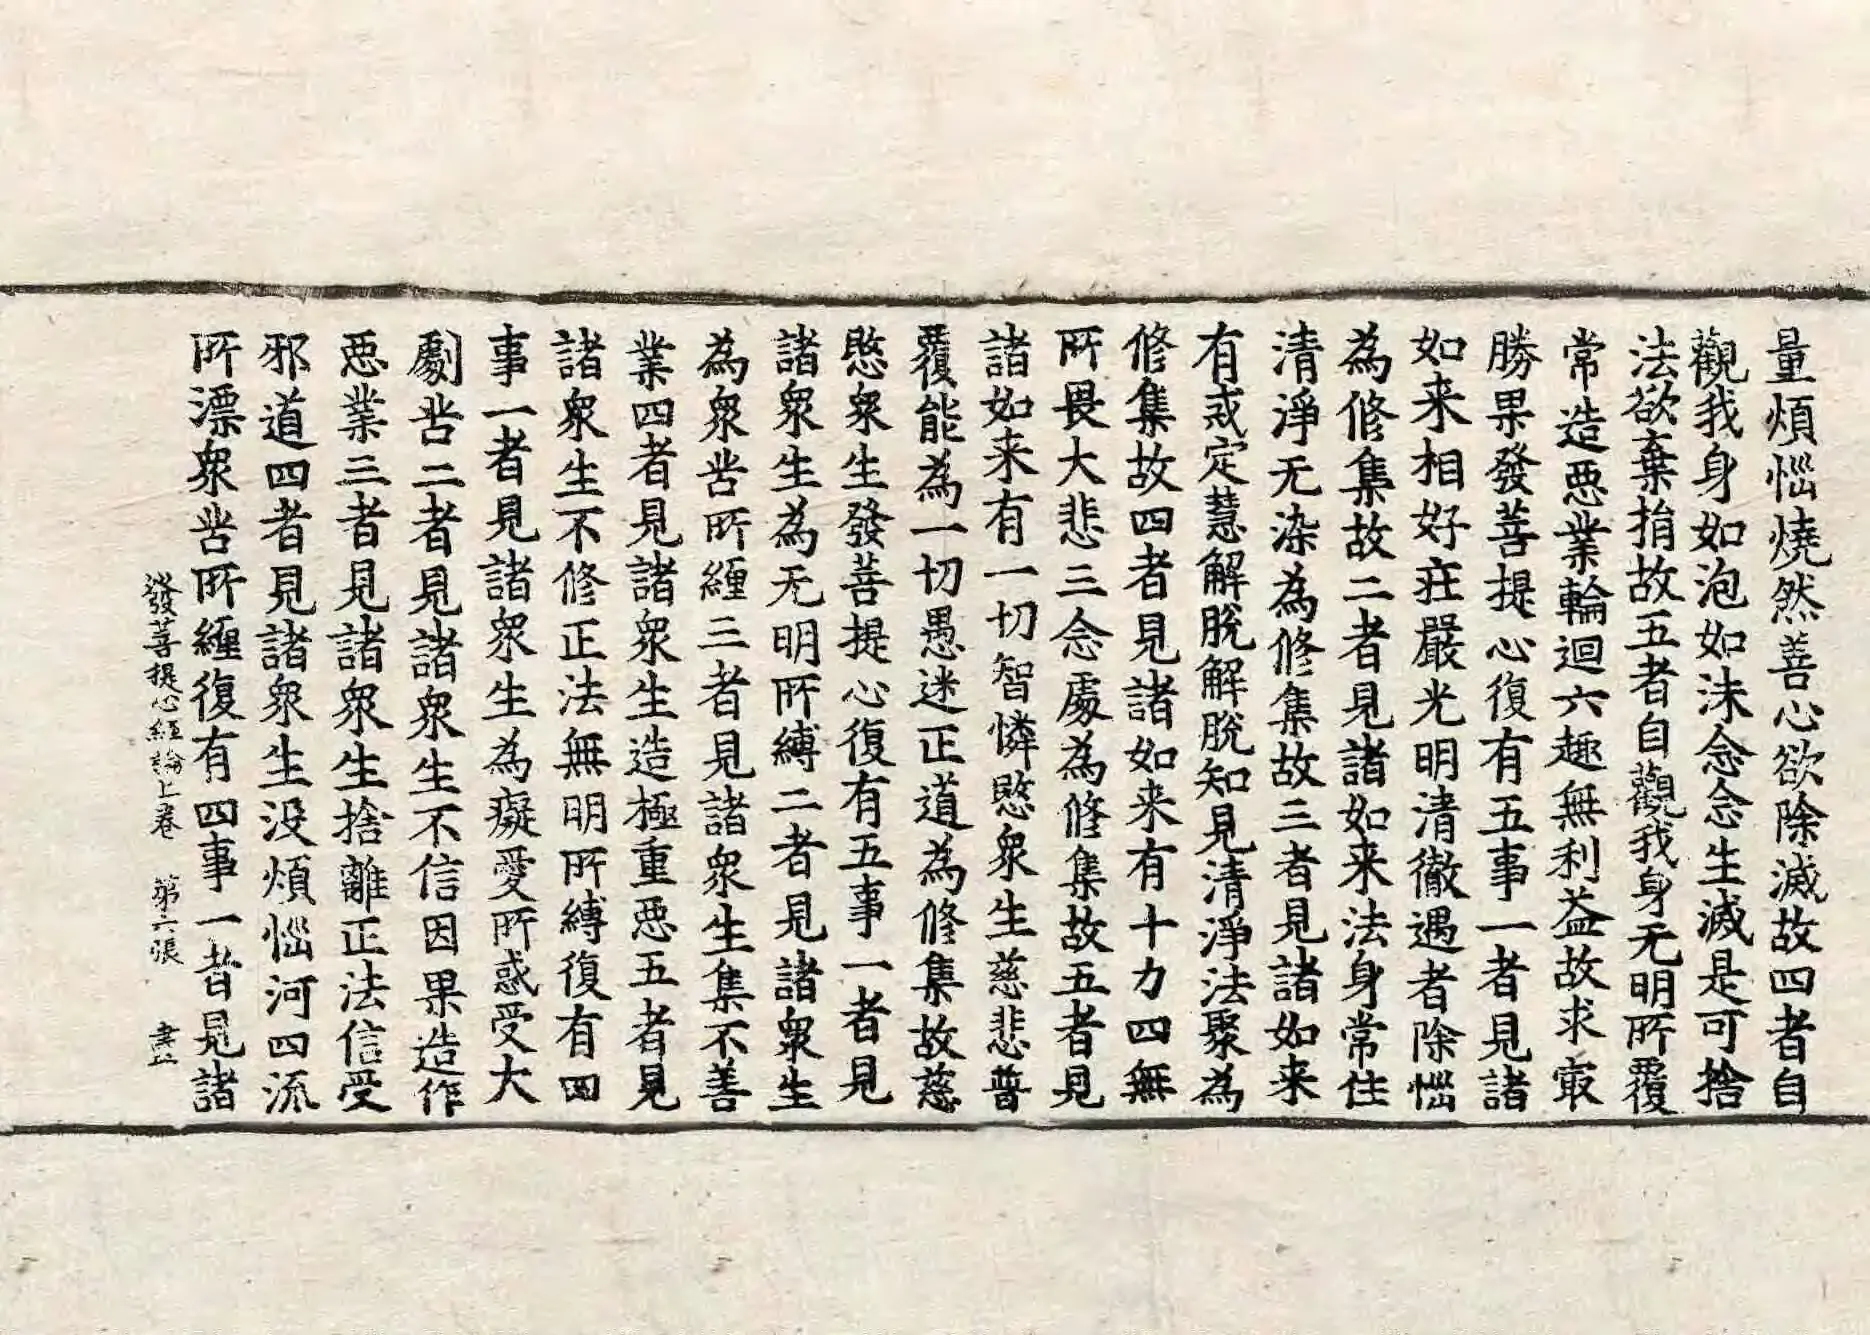 量煩惱燒然善心欲除滅故四者自
觀我身如泡如沫念念生滅是可捨
法欲棄捐故五者自觀我身无明所覆
常造惡業輪迴六趣無利益故求㝡
勝果發菩提心復有五事一者見諸
如来相好莊嚴光明清徹遇者除惱
為修集故二者見諸如来法身常住
清淨无染為修集故三者見諸如来
有戒定慧解脫解脫知見清淨法聚為
修集故四者見諸如来有十力四無
所畏大悲三念處為修集故五者見
諸如来有一切智憐愍眾生慈悲普
覆能為一切愚迷正道為修集故慈
愍眾生發菩提心復有五事一者見
諸眾生為无明所縛二者見諸眾生
為眾苦所纏三者見諸眾生集不善
業四者見諸眾生造極重惡五者見
諸眾生不修正法無明所縛復有四
事一者見諸眾生為癡愛所惑受大
劇苦二者見諸眾生不信因果造作
惡業三者見諸眾生捨離正法信受
邪道四者見諸眾生没煩惱河四流
所漂眾苦所纏復有四事一者見諸
發菩提心經論上卷 第六張 晝